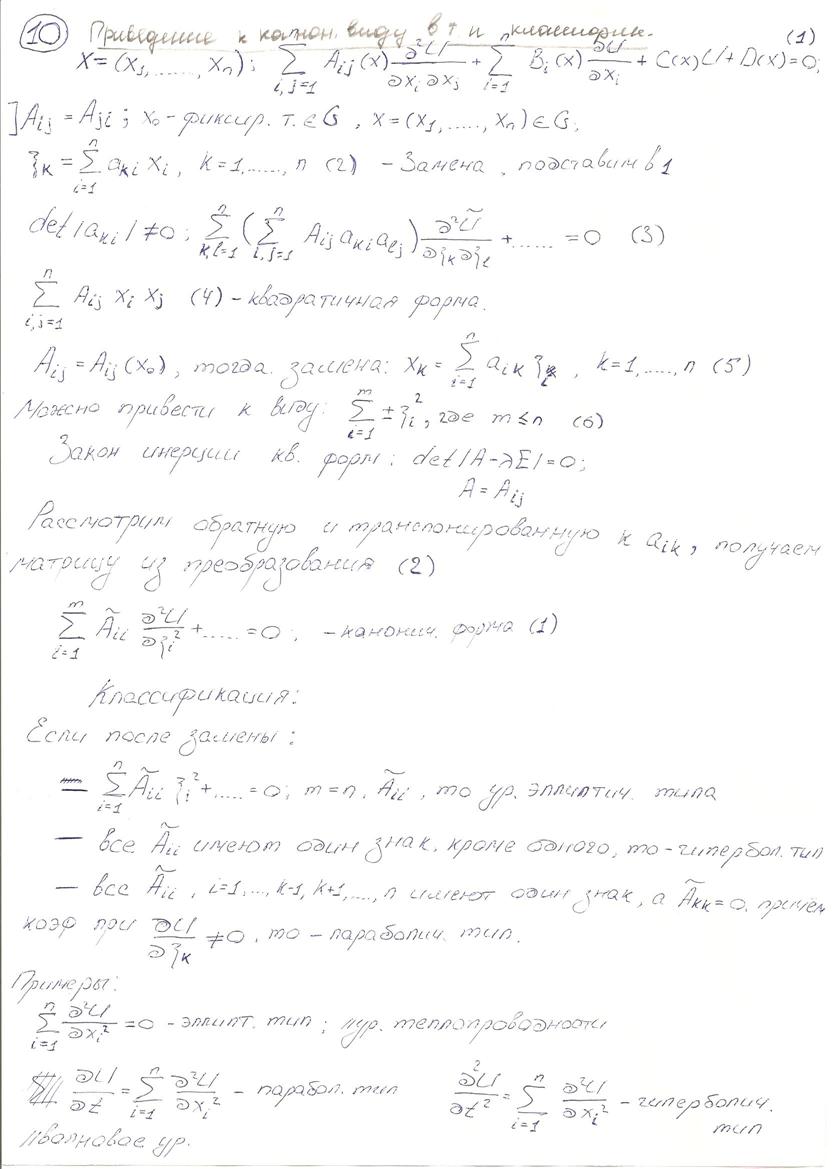 10 Приведение к канон. виду в т и классифик.
(1)
X = (x₁, ......, xₙ); ∑_{i,j=1}^{n} A_{ij}(x) ∂²U/∂x_i∂x_j + ∑_{i=1}^{n} B_i(x) ∂U/∂x_i + C(x)U + D(x) = 0;
]A_{ij} = A_{ji}; x₀ - фиксир. т. ∈ G, x = (x₁, ....., xₙ) ∈ G;
ξ_k = ∑_{i=1}^{n} a_{ki} x_i, k = 1, ......, n (2) - Замена, подставим в 1
det |a_{ki}| ≠ 0; ∑_{k,l=1}^{n} (∑_{i,j=1}^{n} A_{ij} a_{ki} a_{lj}) ∂²Ũ/∂ξ_k∂ξ_l + ...... = 0 (3)
∑_{i,j=1}^{n} A_{ij} x_i x_j (4) - квадратичная форма.
A_{ij} = A_{ij}(x₀), тогда замена: x_k = ∑_{i=1}^{n} a_{ik} ξ_i, k = 1, ....., n (5)
Можно привести к виду: ∑_{i=1}^{m} ± ξ_i², где m ≤ n (6)
Закон инерции кв. форм: det |A - λE| = 0;
A = A_{ij}
Рассмотрим обратную и транспонированную к a_{ik}, получаем
матрицу из преобразования (2)
∑_{i=1}^{m} Ã_{ii} ∂²U/∂ξ_i² + ..... = 0; - канонич. форма (1)
Классификация:
Если после замены:
— ∑_{i=1}^{n} Ã_{ii} ξ_i² + ..... = 0; m = n, Ã_{ii}, то ур. эллиптич. типа
— все Ã_{ii} имеют один знак, кроме одного, то - гипербол. тип
— все Ã_{ii}, i = 1, ..., k-1, k+1, ...., n имеют один знак, а Ã_{kk} = 0, причем
коэф при ∂U/∂ξ_k ≠ 0, то - параболич. тип.
Примеры:
∑_{i=1}^{n} ∂²U/∂x_i² = 0 - эллипт. тип; //ур. теплопроводности
∂U/∂t = ∑_{i=1}^{n} ∂²U/∂x_i² - парабол. тип ∂²U/∂t² = ∑_{i=1}^{n} ∂²U/∂x_i² - гиперболич.
тип
//волновое ур.